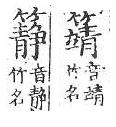 音靖
竹名
音靜
竹名